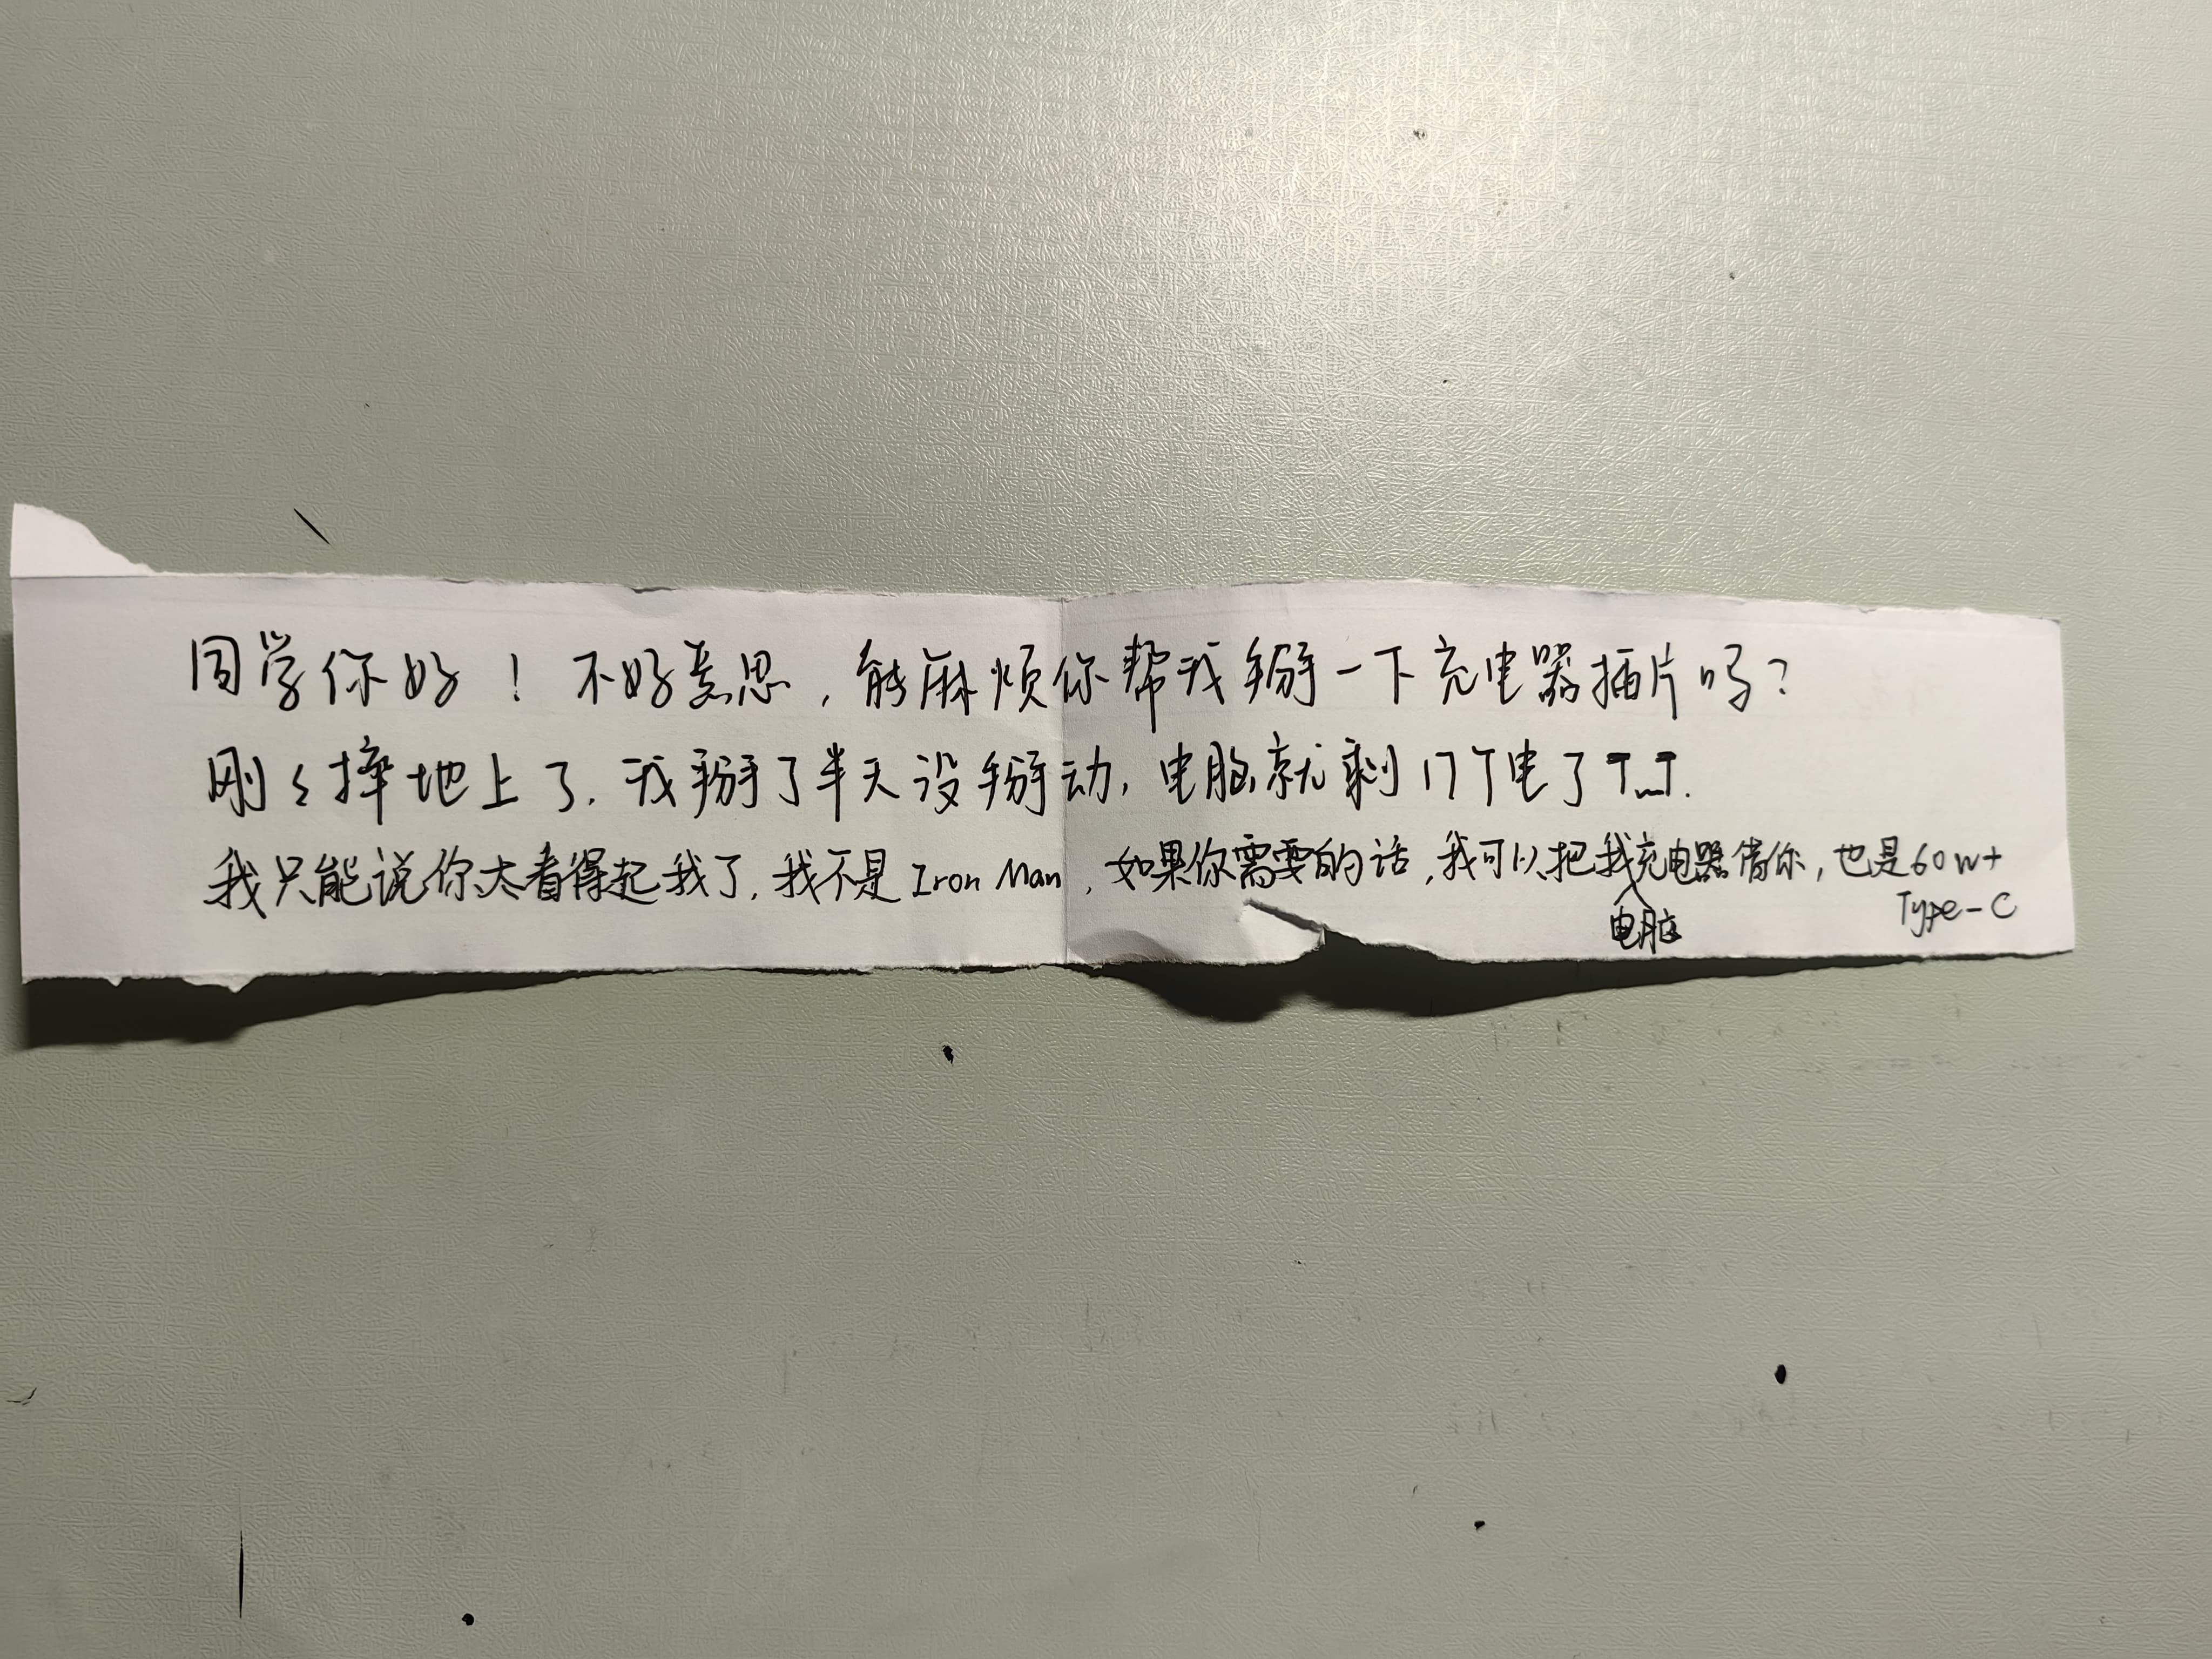 同学你好！不好意思，能麻烦你帮我掰一下充电器插片吗？
刚々摔地上了，我掰了半天没掰动，电脑就剩17个电了T_T.
我只能说你太看得起我了，我不是Iron Man，如果你需要的话，我可以把我电脑充电器借你，也是60W+
Type-C